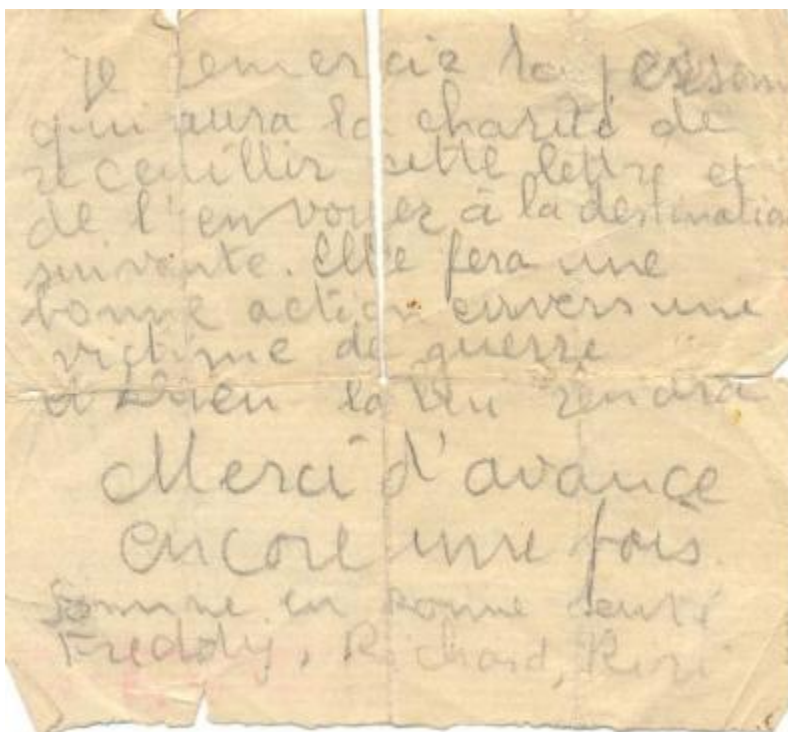 Je remercie la
qui aura la charité de
receuillir cette lettre et
de l'envoyer à la destination
suivante. Elle fera une
bonne action envers une
victime de guerre
Dieu rendra
Merci d'avance
encore une fois.
Somme en bonne santé
Freddy, Richard,